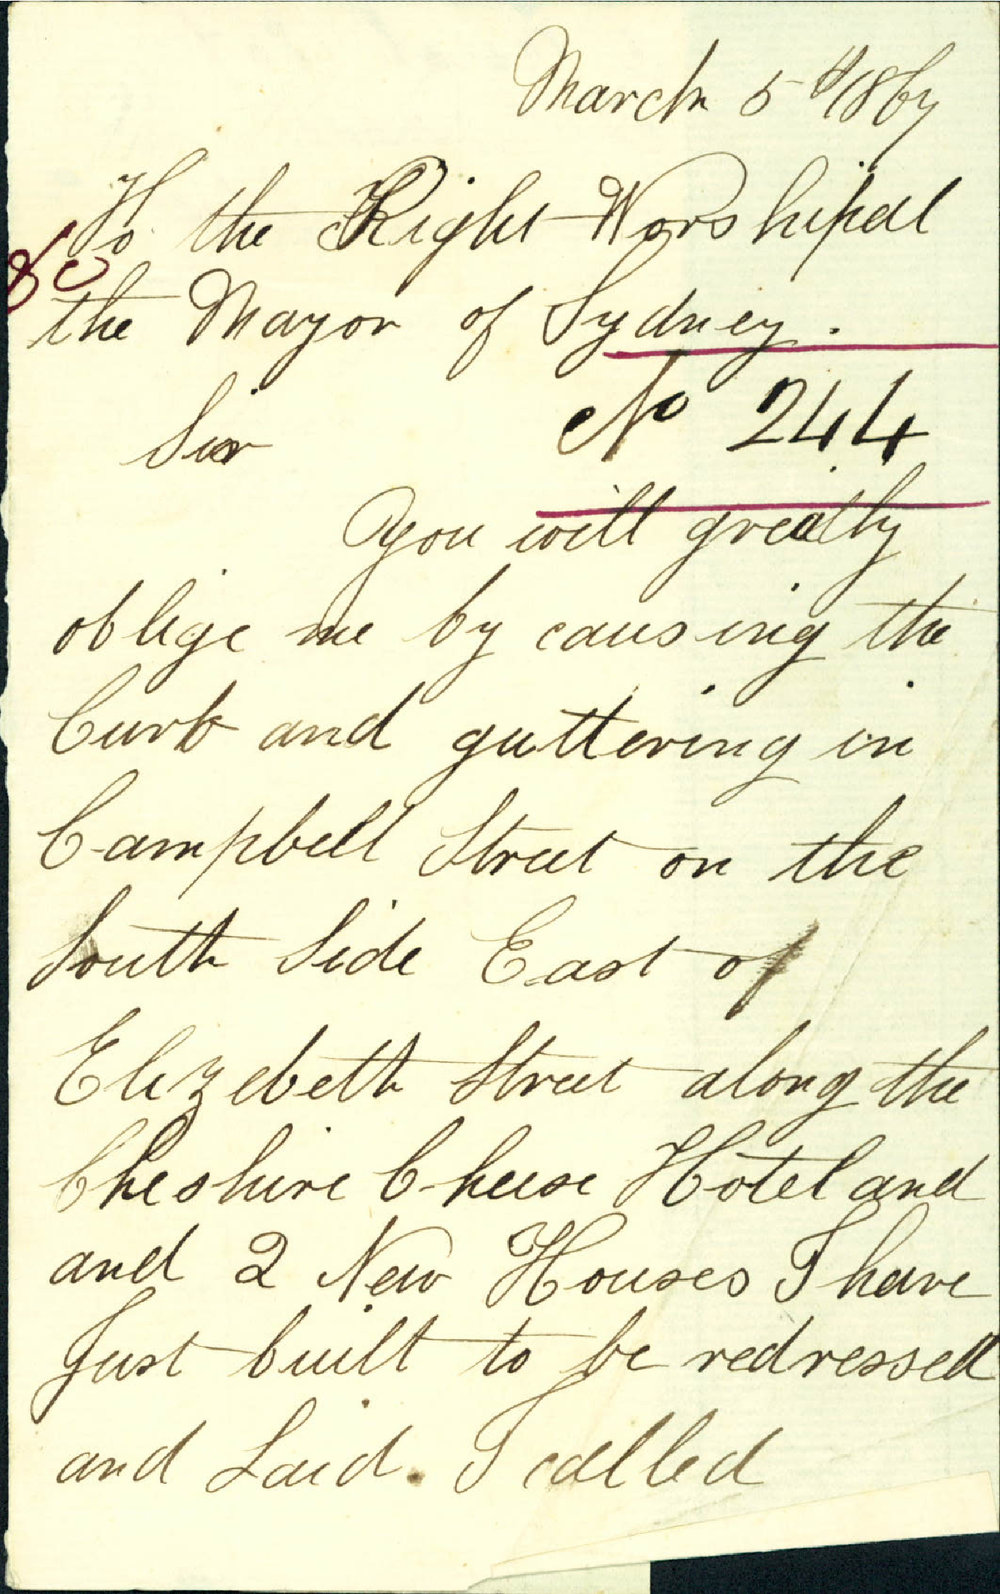 March 5th 1867
To the Right Worshipal
the Mayor of Sydney.
Sir No 244
You will greatly
oblige me by causing the
Curb and guttering in
Campbell Street on the
South Side East of
Elizebeth Street along the
Cheshire Cheese Hotel and
and 2 New Houses I have
Just built to be redressed
and Laid. I called